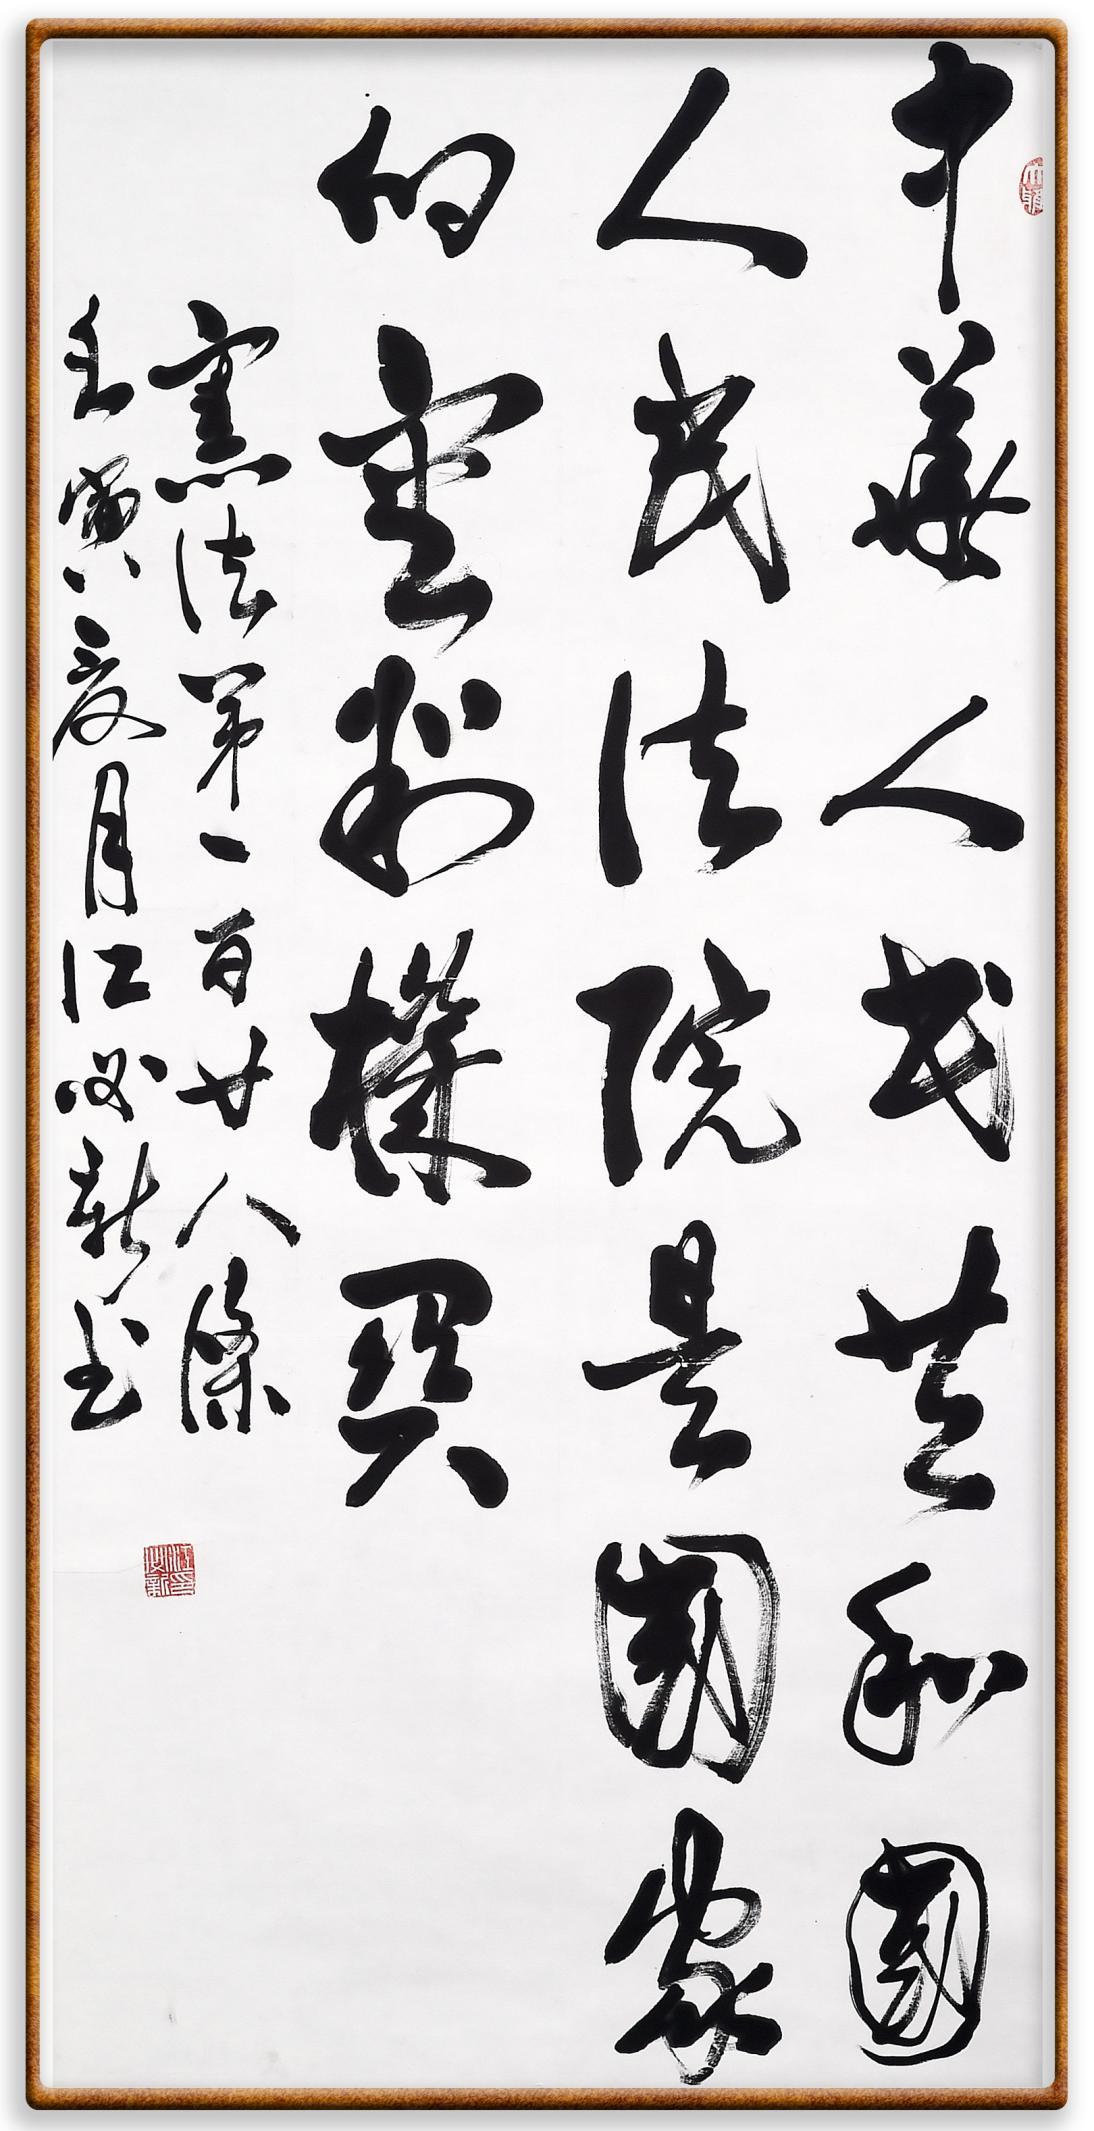 中華人民共和國
人民法院是國家
的審判機關
憲法第一百廿八條
壬寅夏月江必新書
江印必新